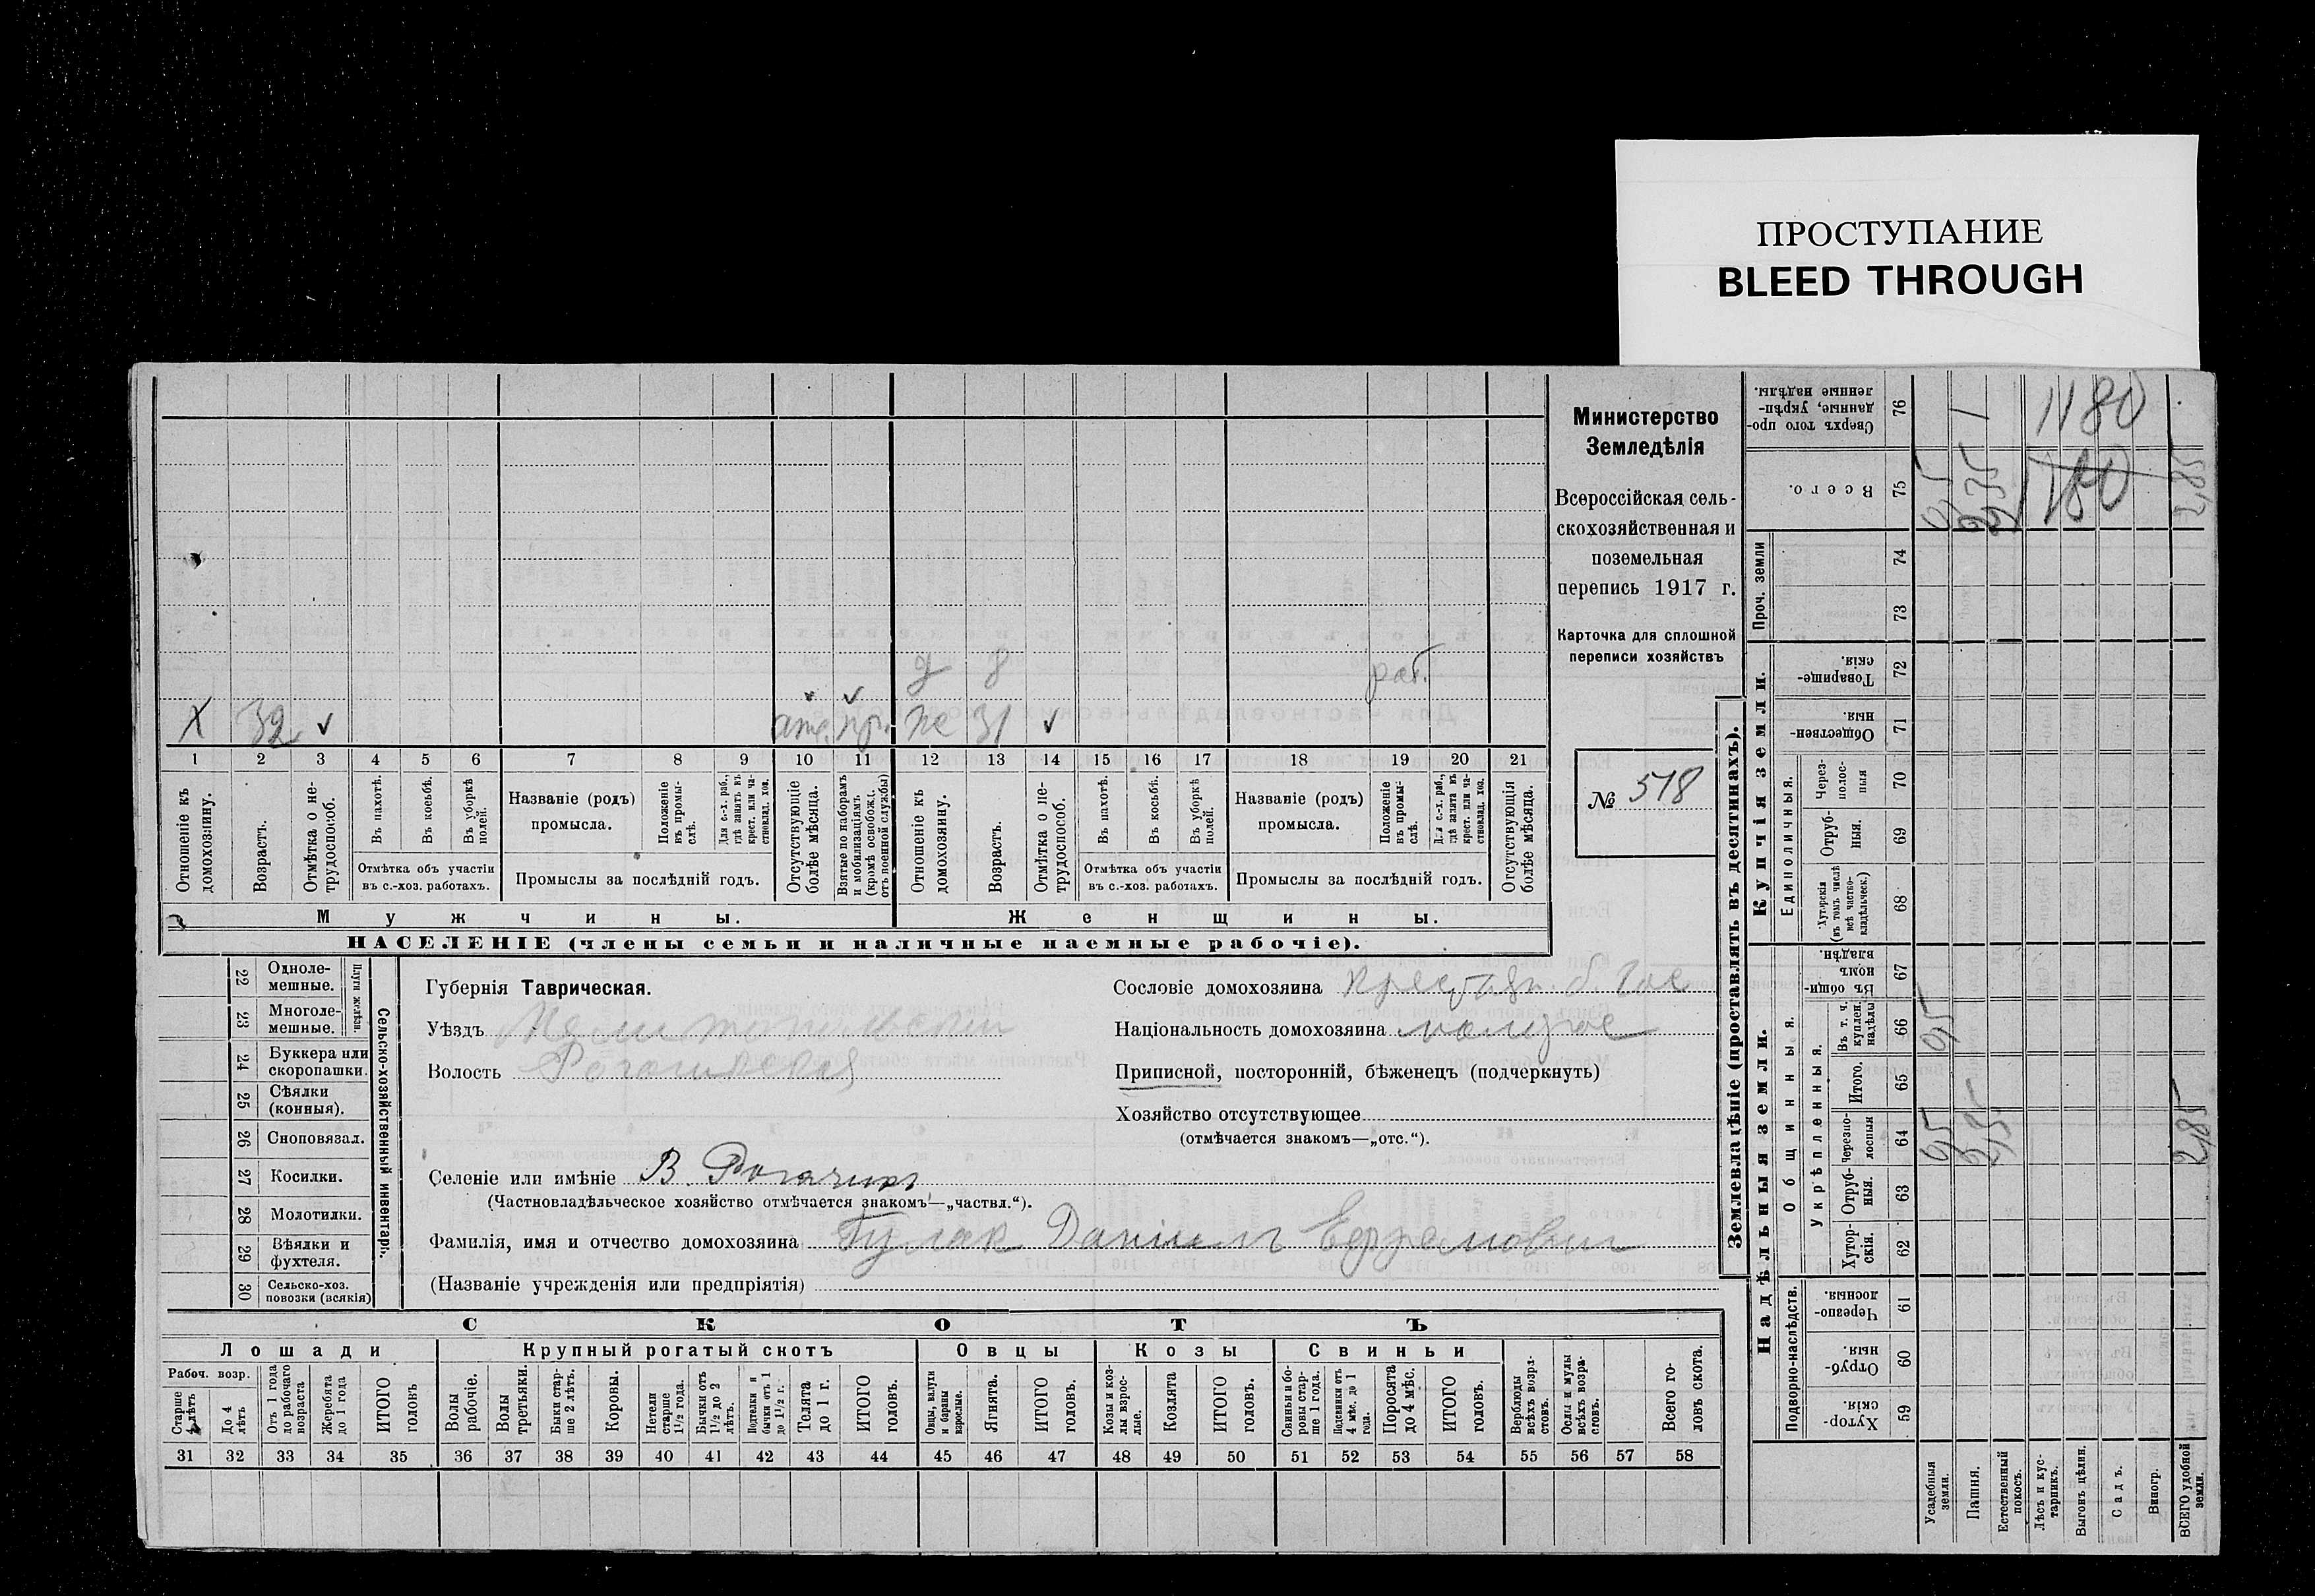 ПРОСТУПАНИЕ
BLEED THROUGH
Министерство
Земледѣлія
Всероссійская сель-
скохозяйственная и
поземельная
перепись 1917 г.
Карточка для сплошной
переписи хозяйствъ
№ 518
д 8 раб.
X 32 ✓ отс. пр. же 31 ✓
1 2 3 4 5 6 7 8 9 10 11 12 13 14 15 16 17 18 19 20 21
Отношеніе къ домохозяину.
Возрастъ.
Отмѣтка о нетрудоспособ.
Въ пахотѣ.
Въ косьбѣ.
Въ уборкѣ полей.
Отмѣтка объ участіи
въ с.-хоз. работахъ.
Названіе (родъ)
промысла.
Положеніе въ промыслѣ.
Для с.-х. раб., гдѣ занятъ въ крест. или частновлад. хоз.
Промыслы за послѣдній годъ.
Отсутствующіе болѣе мѣсяца.
Взятые по наборамъ и мобилизаціямъ (кромѣ освобожд. отъ военной службы)
Отношеніе къ домохозяину.
Возрастъ.
Отмѣтка о нетрудоспособ.
Въ пахотѣ.
Въ косьбѣ.
Въ уборкѣ полей.
Отмѣтка объ участіи
въ с.-хоз. работахъ.
Названіе (родъ)
промысла.
Положеніе въ промыслѣ.
Для с.-х. раб., гдѣ занята въ крест. или частновлад. хоз.
Промыслы за послѣдній годъ.
Отсутствующія болѣе мѣсяца.
Мужчины.
Женщины.
НАСЕЛЕНІЕ (члены семьи и наличные наемные рабочіе).
Сельско-хозяйственный инвентарь.
Плуги желѣзн.
22 Одноле-
мешные.
23 Многоле-
мешные.
24 Буккера или
скоропашки.
25 Сѣялки
(конныя).
26 Сноповязал.
27 Косилки.
28 Молотилки.
29 Вѣялки и
фухтеля.
30 Сельско-хоз.
повозки (всякія)
Губернія Таврическая.
Уѣздъ Мелитопольскій
Волость Рогачикская
Селеніе или имѣніе В. Рогачикъ
(Частновладѣльческое хозяйство отмѣчается знакомъ—„частвл.“).
Фамилія, имя и отчество домохозяина Гулак Даніилъ Ефремович
(Названіе учрежденія или предпріятія)
Сословіе домохозяина Крестьян. б. Гос
Національность домохозяина малорос
Приписной, посторонній, бѣженецъ (подчеркнуть)
Хозяйство отсутствующее
(отмѣчается знакомъ—„отс.“).
СКОТЪ
Лошади
Крупный рогатый скотъ
Овцы
Козы
Свиньи
Рабоч. возр.
Старше 4 лѣтъ
До 4 лѣтъ
Отъ 1 года до рабочаго возраста
Жеребята до 1 года
ИТОГО головъ
Волы рабочіе.
Волы третьяки.
Быки старше 2 лѣтъ.
Коровы.
Нетели старше 1½ года.
Бычки отъ 1½ до 2 лѣтъ.
Подтелки и бычки отъ 1 до 1½ г.
Телята до 1 г.
ИТОГО головъ.
Овцы, валухи и бараны взрослые.
Ягнята.
ИТОГО головъ.
Козы и козлы взрослые.
Козлята
ИТОГО головъ.
Свиньи и боровы старше 1 года.
Подсвинки отъ 4 мѣс. до 1 года.
Поросята до 4 мѣс.
ИТОГО головъ.
Верблюды всѣхъ возрастовъ.
Ослы и мулы всѣхъ возрастовъ.
Всего головъ скота.
31 32 33 34 35 36 37 38 39 40 41 42 43 44 45 46 47 48 49 50 51 52 53 54 55 56 57 58
Землевладѣніе (проставлять въ десятинахъ).
Надѣльныя земли.
Купчія земли.
Проч. земли
Подворно-наслѣдств.
Общинныя.
Укрѣпленныя.
Единоличныя.
59 Хуторскія.
60 Отрубныя.
61 Черезполосныя.
62 Хуторскія.
63 Отрубныя.
64 Черезполосныя
65 Итого.
66 Въ т. ч. куплен. надѣлы
67 Въ общинномъ владѣн.
68 Хуторскія (въ томъ числѣ всѣ частновладѣльческ.)
69 Отрубныя.
70 Черезполосныя
71 Общественныя
72 Товарищескія.
73
74
75 Всего.
76 Сверхъ того проданные, укрѣпленные надѣлы.
Усадебныя земли.
Пашня.
Естественный покосъ.
Лѣсъ и кустарникъ.
Выгонъ цѣлин.
Садъ.
Виногр.
ВСЕГО удобной земли.
1180
2,85
2,85